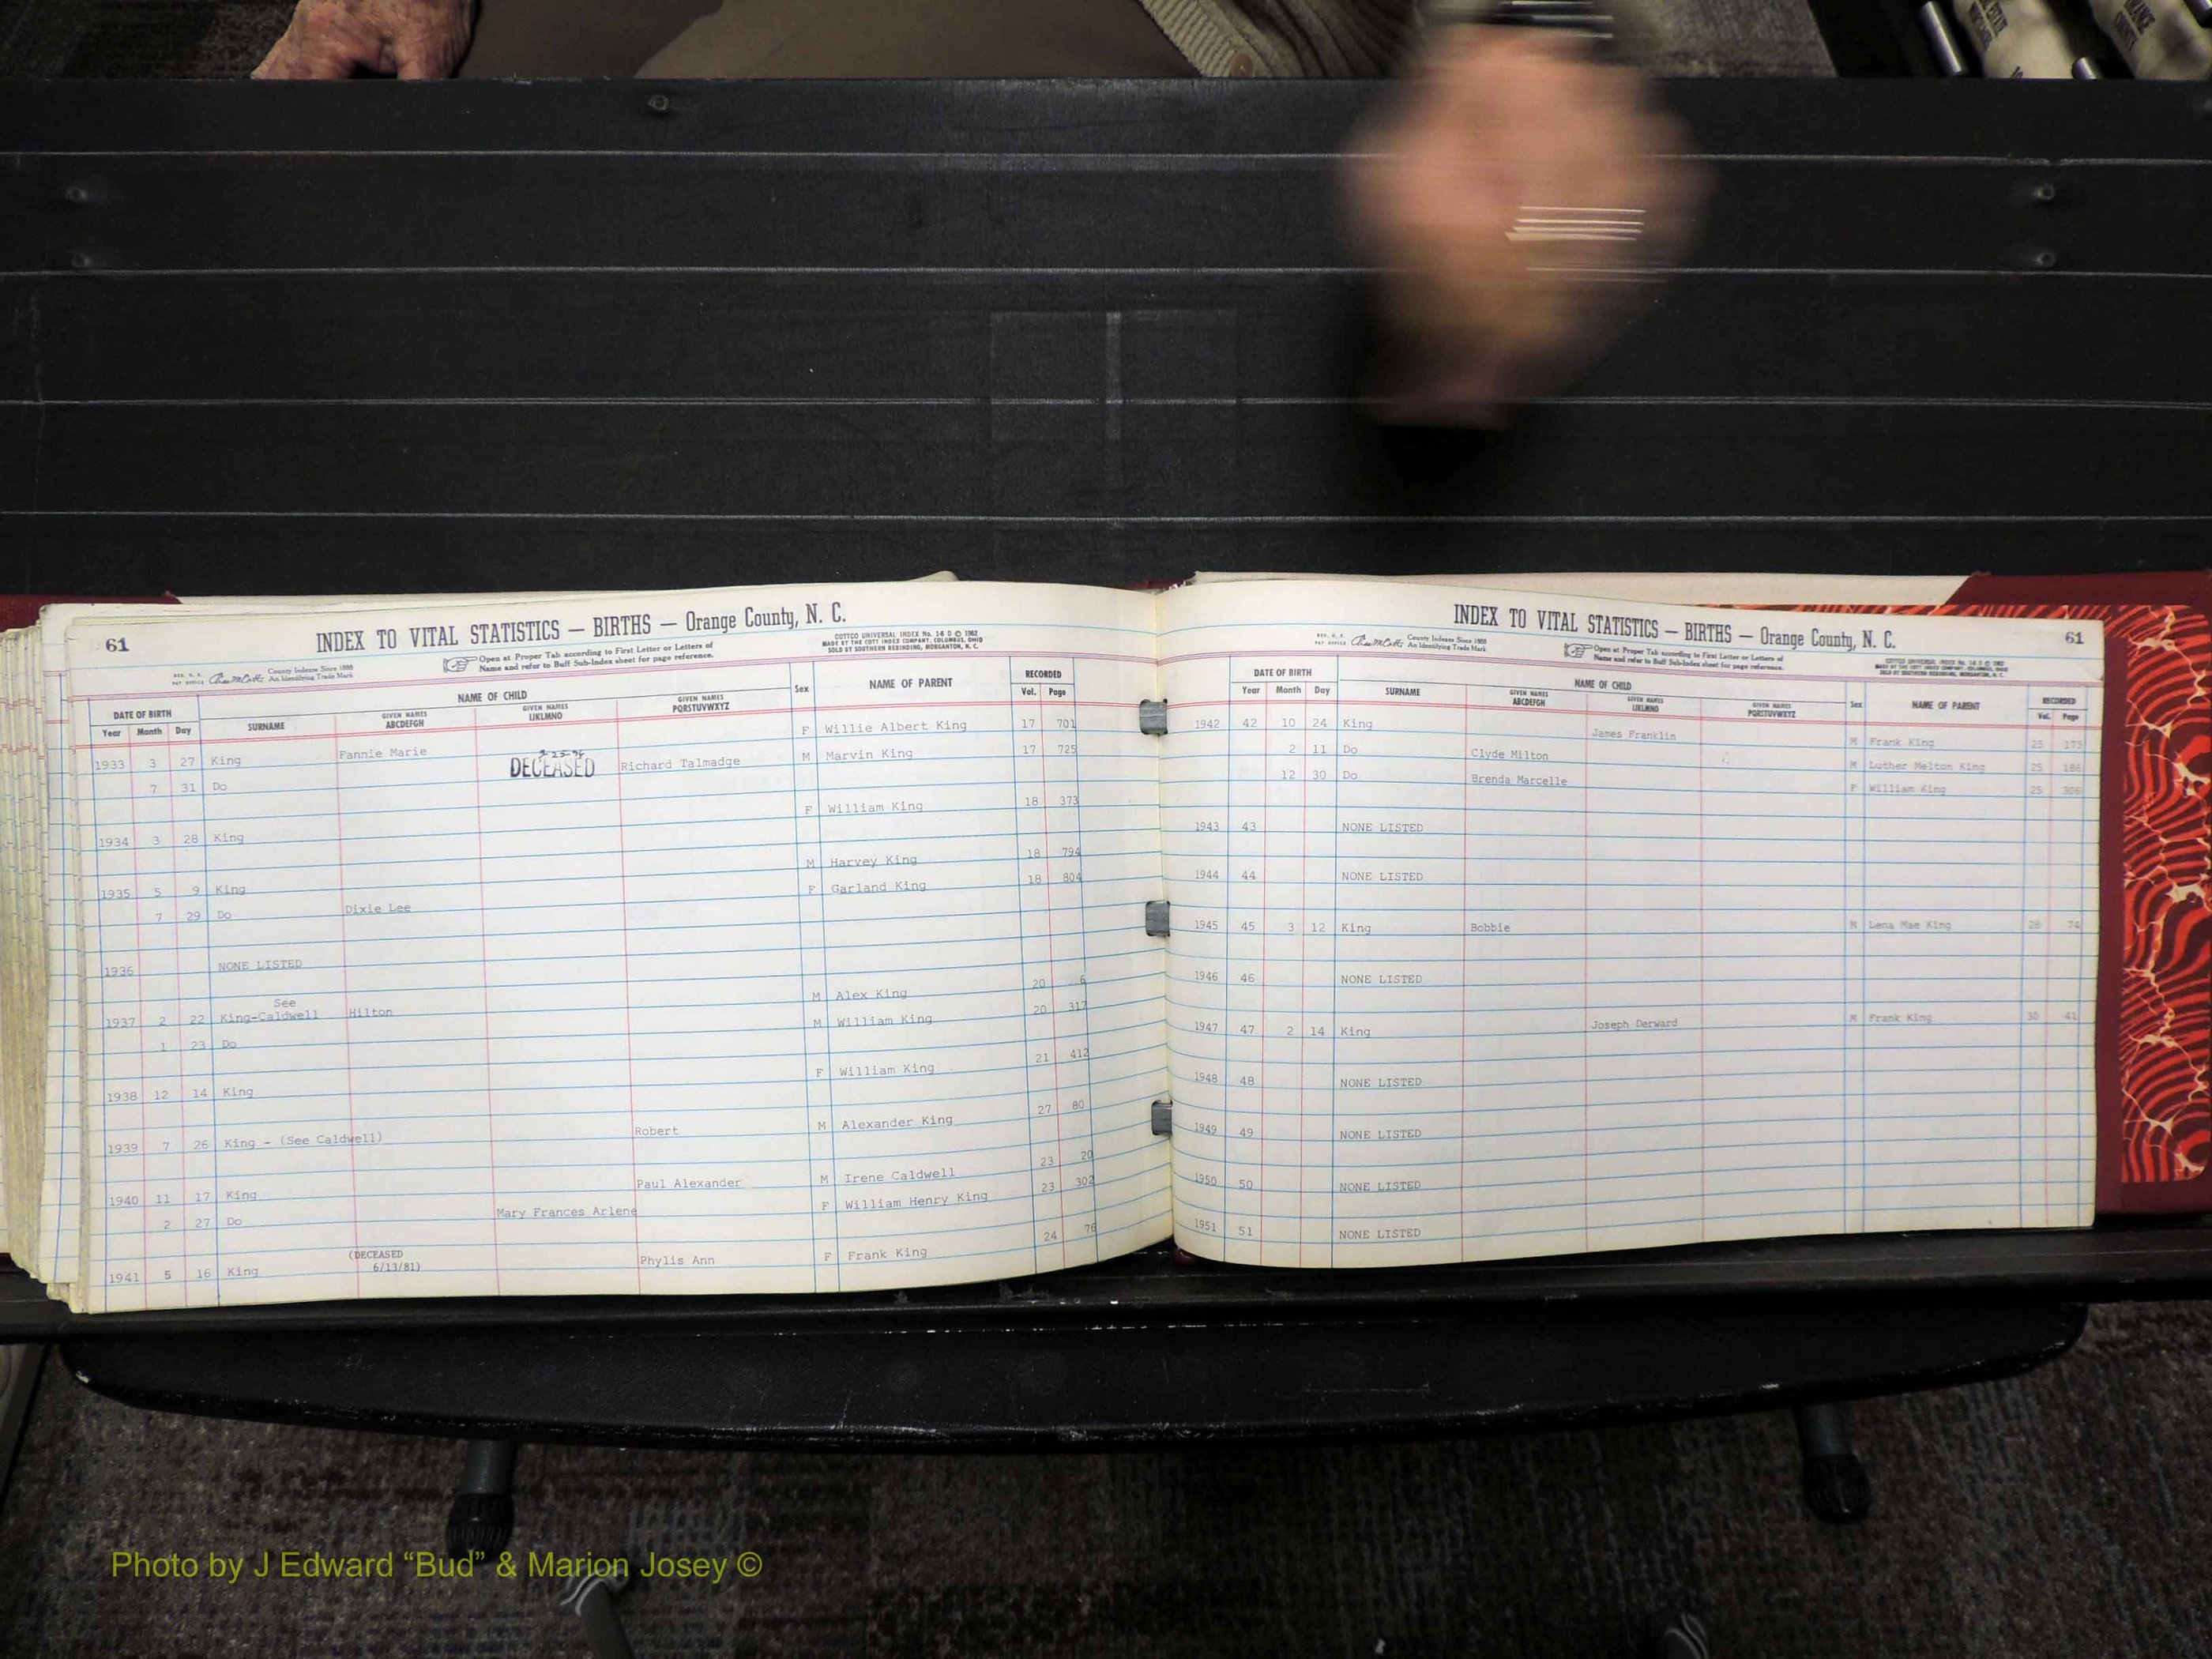 61
INDEX TO VITAL STATISTICS — BIRTHS — Orange County, N. C.
County Indexes Since 1888
An Identifying Trade Mark
Open at Proper Tab according to First Letter or Letters of
Name and refer to Buff Sub-Index sheet for page reference.
COTTCO UNIVERSAL INDEX No. 1-8 D © 1962
MADE BY THE COTT INDEX COMPANY, COLUMBUS, OHIO
SOLD BY SOUTHERN REBINDING, MORGANTON, N. C.
DATE OF BIRTH NAME OF CHILD Sex NAME OF PARENT RECORDED
Year Month Day SURNAME GIVEN NAMES ABCDEFGH GIVEN NAMES IJKLMNO GIVEN NAMES PQRSTUVWXYZ Vol. Page
1933 3 27 King Fannie Marie F Willie Albert King 17 701
DECEASED
7 31 Do Richard Talmadge M Marvin King 17 725
1934 3 28 King F William King 18 373
1935 5 9 King M Harvey King 18 794
7 29 Do Dixie Lee F Garland King 18 804
1936 NONE LISTED
See
1937 2 22 King-Caldwell Hilton M Alex King 20 6
1 23 Do M William King 20 317
1938 12 14 King F William King 21 412
1939 7 26 King - (See Caldwell) Robert M Alexander King 27 80
1940 11 17 King Paul Alexander M Irene Caldwell 23 20
2 27 Do Mary Frances Arlene F William Henry King 23 302
1941 5 16 King (DECEASED 6/13/81) Phylis Ann F Frank King 24 76
INDEX TO VITAL STATISTICS — BIRTHS — Orange County, N. C.
61
County Indexes Since 1888
An Identifying Trade Mark
Open at Proper Tab according to First Letter or Letters of
Name and refer to Buff Sub-Index sheet for page reference.
DATE OF BIRTH NAME OF CHILD Sex NAME OF PARENT RECORDED
Year Month Day SURNAME GIVEN NAMES ABCDEFGH GIVEN NAMES IJKLMNO GIVEN NAMES PQRSTUVWXYZ Vol. Page
1942 42 10 24 King James Franklin M Frank King 25 173
2 11 Do Clyde Milton M Luther Melton King 25 186
12 30 Do Brenda Marcelle F William King 25 306
1943 43 NONE LISTED
1944 44 NONE LISTED
1945 45 3 12 King Bobbie M Lena Mae King 28 74
1946 46 NONE LISTED
1947 47 2 14 King Joseph Derward M Frank King 30 41
1948 48 NONE LISTED
1949 49 NONE LISTED
1950 50 NONE LISTED
1951 51 NONE LISTED
Photo by J Edward “Bud” & Marion Josey ©